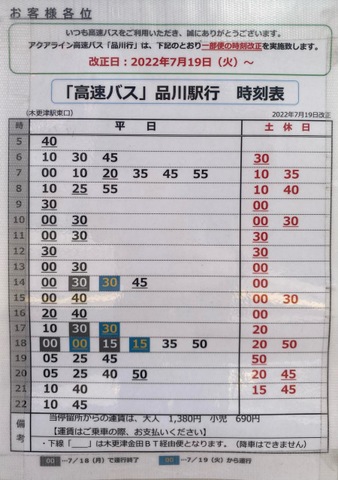 お客様各位
いつも高速バスをご利用いただき、誠にありがとうございます。
アクアライン高速バス「品川行」は、下記のとおり一部便の時刻改正を実施致します。
改正日：2022年7月19日（火）～
「高速バス」品川駅行　時刻表
（木更津駅東口） 2022年7月19日改正
時 平　日 土　休　日
5 40
6 10 30 45 30
7 00 10 20 35 45 55 10 35
8 10 25 55 10 40
9 30 00
10 00 30 00 30
11 00 30 30
12 30 30
13 00 30 00
14 00 30 30 45 00
15 00 40 00 30
16 20 40 00
17 10 30 30 20
18 00 00 15 15 35 50 20 50
19 05 25 45 50
20 05 25 40 50 20 45
21 10 40 15 45
22 10 45
備考 当停留所からの運賃は、大人　1,380円　小児　690円
【運賃はご乗車の際、お支払いください】
・下線「＿＿」は木更津金田ＢＴ経由便となります。（降車はできません）
00 －7/18（月）で運行終了 00 －7/19（火）から運行